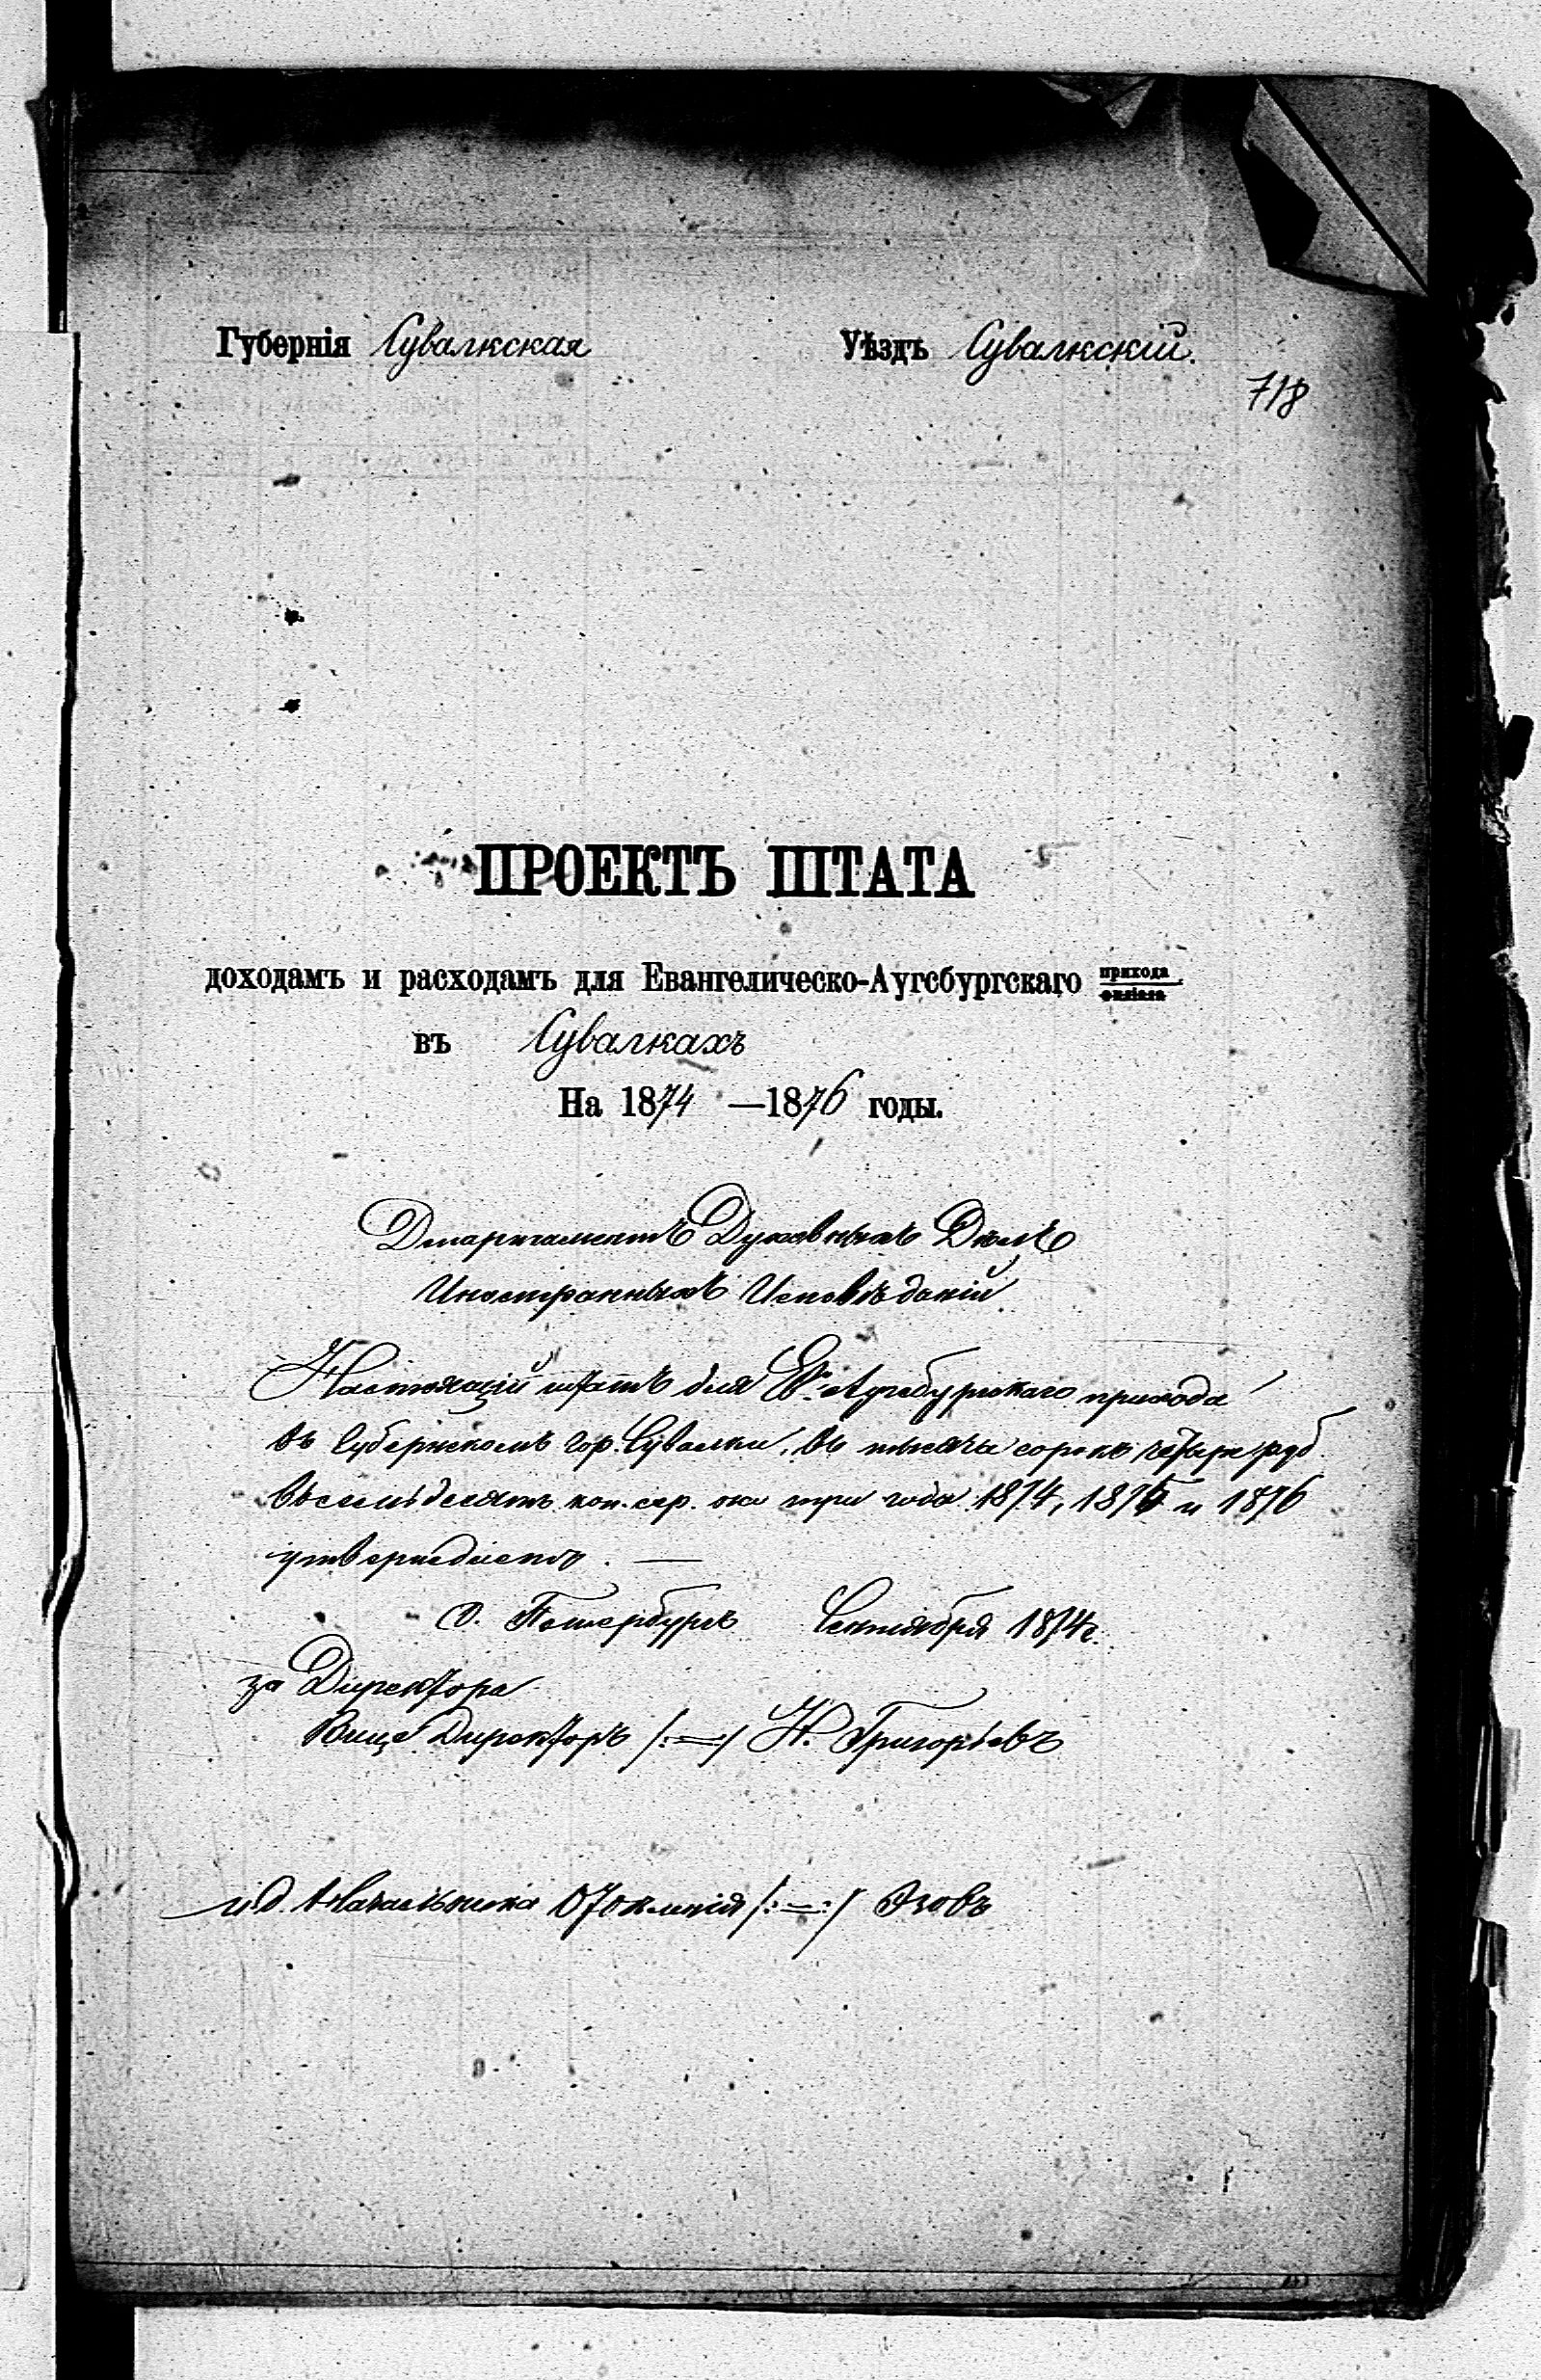 Губернія Сувалкская Уѣздъ Сувалкскій.
718
ПРОЕКТЪ ШТАТА
доходамъ и расходамъ для Евангелическо-Аугсбургскаго прихода
филіала
въ Сувалкахъ
На 1874 —1876 годы.
Департаментъ Духовныхъ Дѣлъ
Иностранныхъ Исповѣданій
Настоящій штатъ для Ев. Аугсбургскаго прихода
въ Губернскомъ гор. Сувалки, въ тысяча сорокъ четыре руб
восемьдесятъ коп. сер. на три года 1874, 1875 и 1876
утверждаетъ. —
С. Петербургъ Сентября 1874 г.
за Директора
Вице Директоръ /:=:/ Н. Григорьевъ
и.д. Начальника Отдѣленія /:=:/ Эзовъ